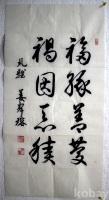 福緣善慶
禍因惡積
kobay